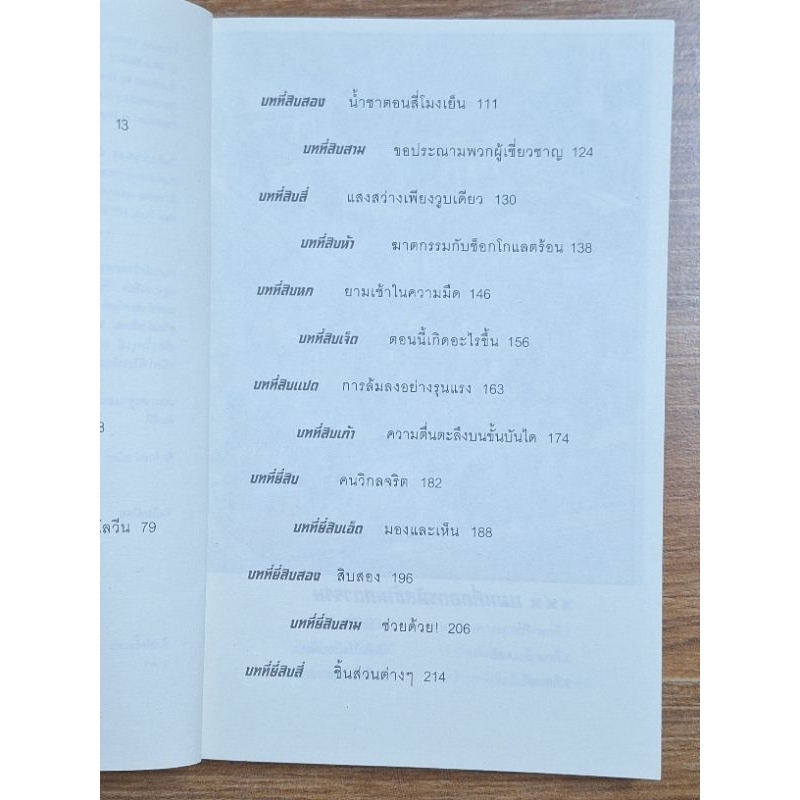 13
3
โลวีน 79
บทที่สิบสอง น้ำชาตอนสี่โมงเย็น 111
บทที่สิบสาม ขอประณามพวกผู้เชี่ยวชาญ 124
บทที่สิบสี่ แสงสว่างเพียงวูบเดียว 130
บทที่สิบห้า ฆาตกรรมกับช็อกโกแลตร้อน 138
บทที่สิบหก ยามเช้าในความมืด 146
บทที่สิบเจ็ด ตอนนี้เกิดอะไรขึ้น 156
บทที่สิบแปด การล้มลงอย่างรุนแรง 163
บทที่สิบเก้า ความตื่นตะลึงบนขั้นบันได 174
บทที่ยี่สิบ คนวิกลจริต 182
บทที่ยี่สิบเอ็ด มองและเห็น 188
บทที่ยี่สิบสอง สิบสอง 196
บทที่ยี่สิบสาม ช่วยด้วย! 206
บทที่ยี่สิบสี่ ชิ้นส่วนต่างๆ 214